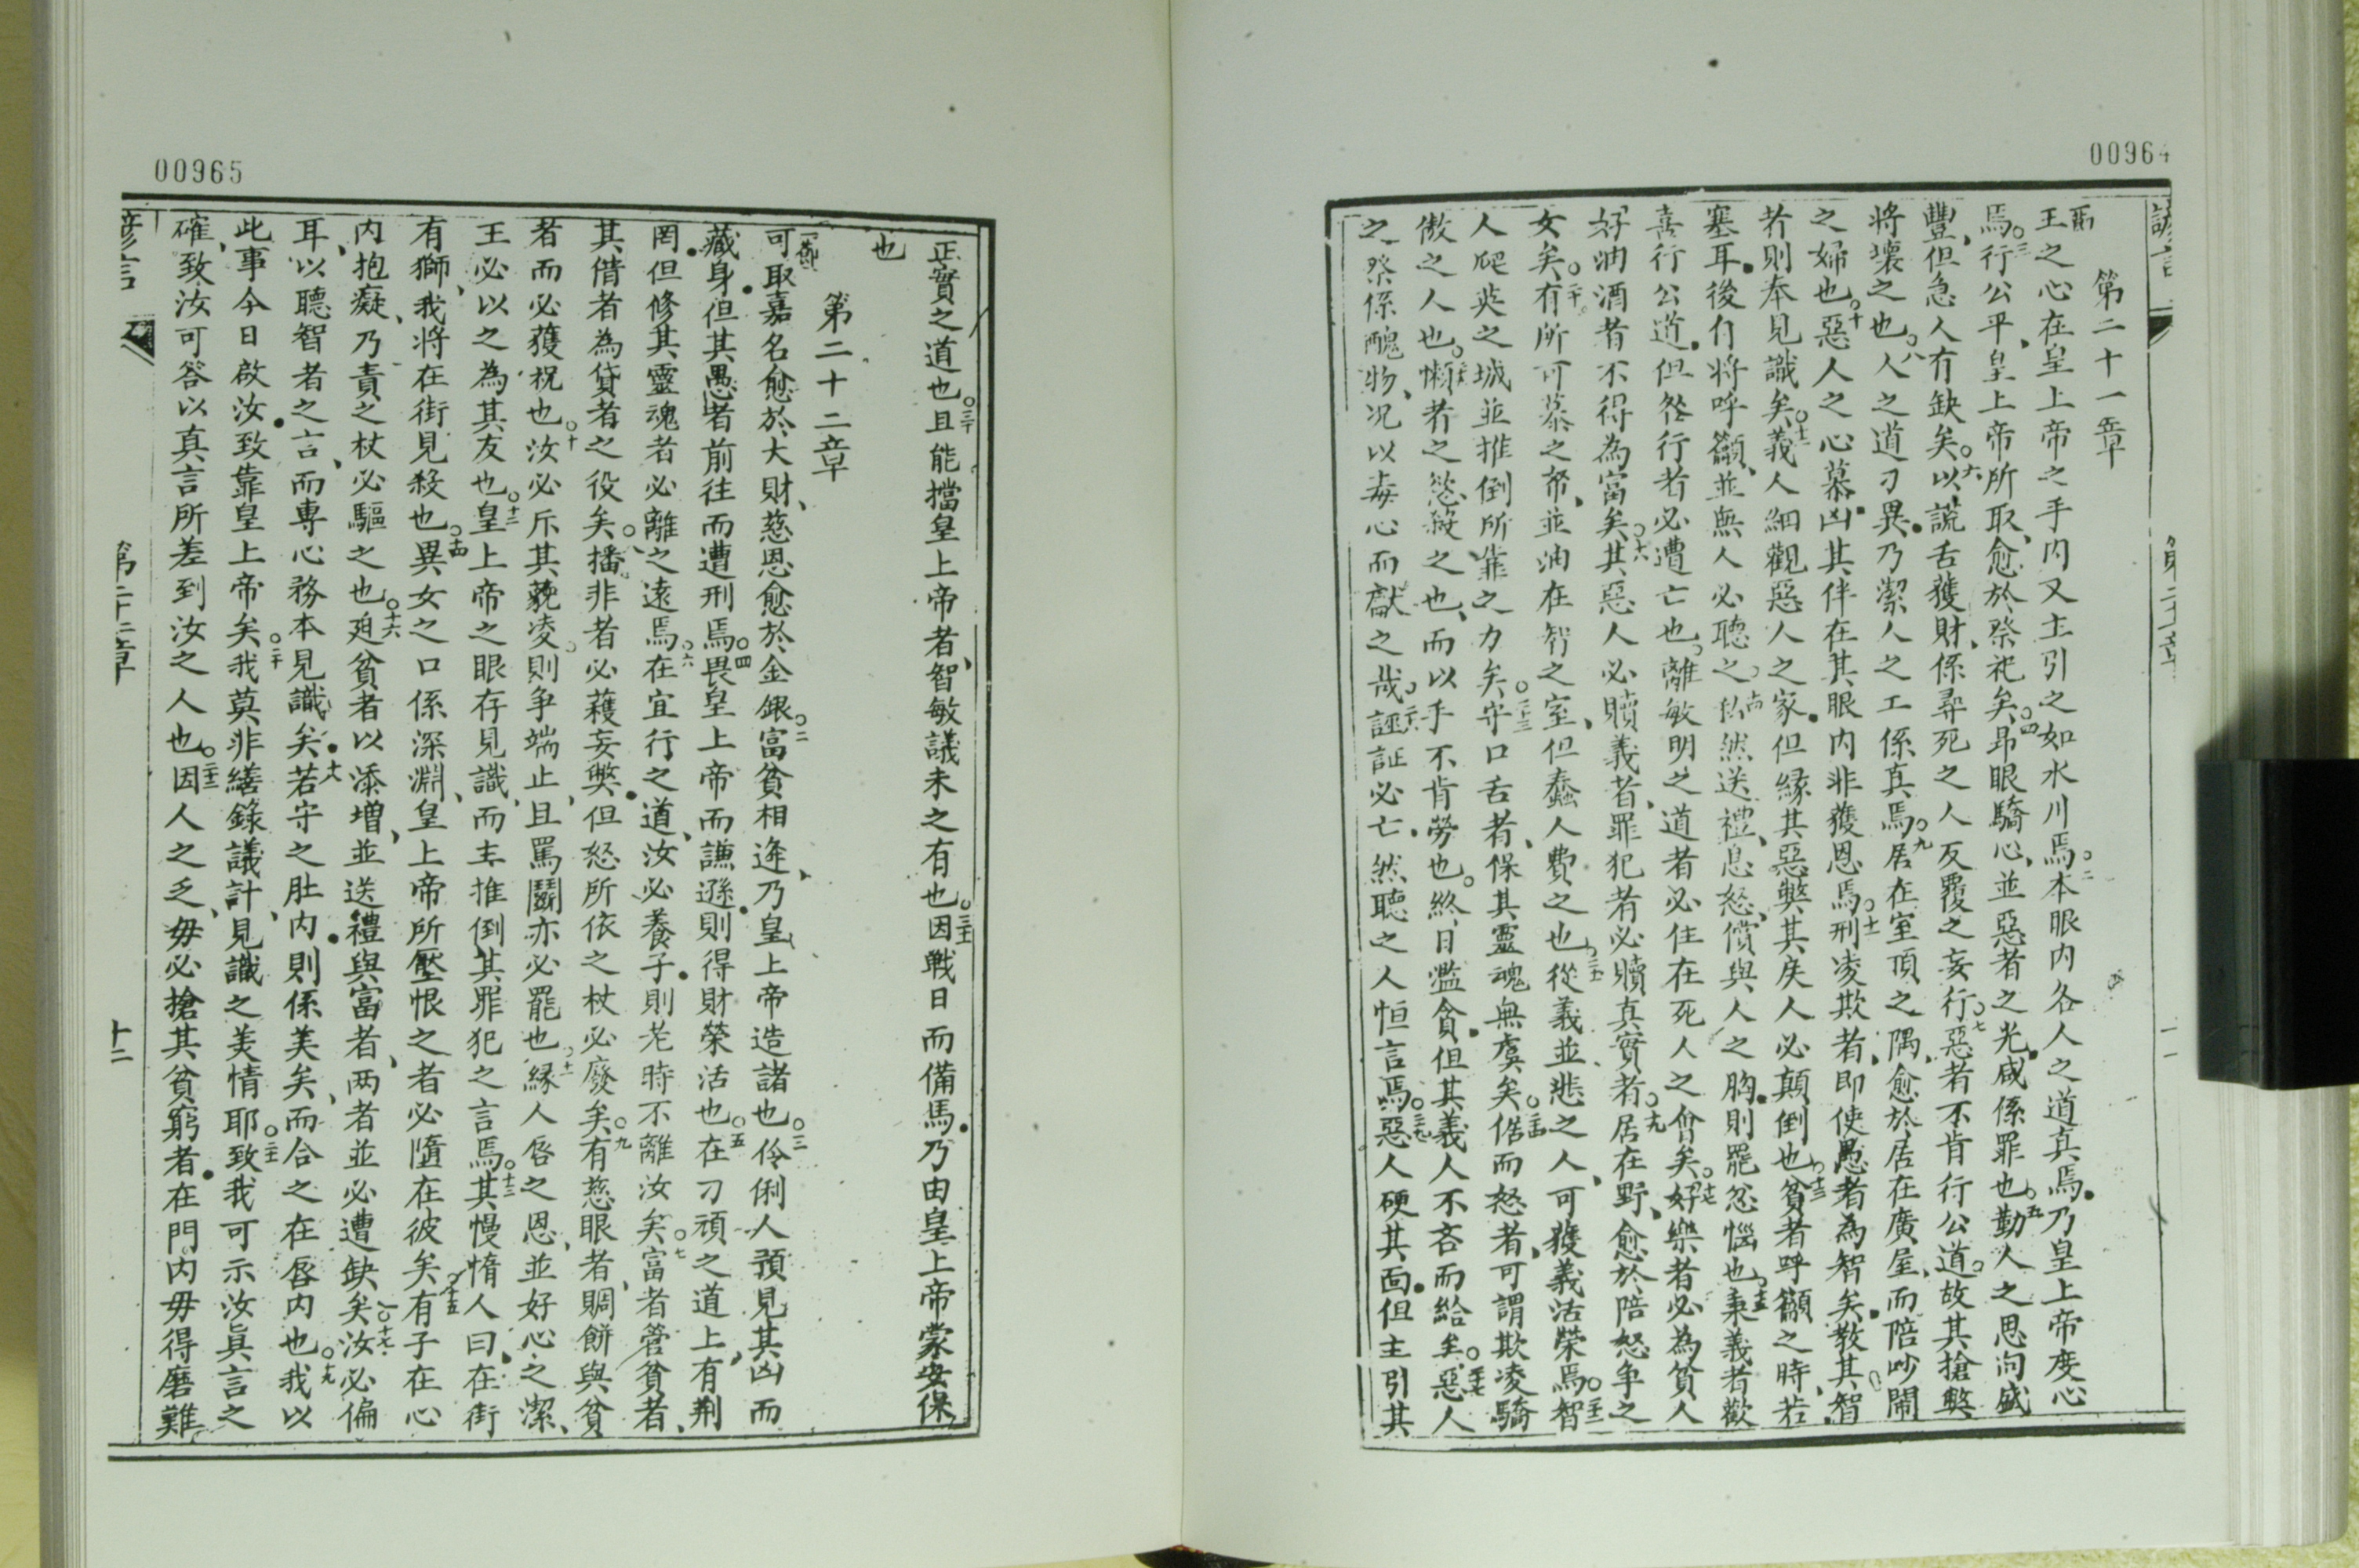 00964
第二十一章
王之心在皇上帝之手内又主引之如水川焉○二本眼内各人之道真焉乃皇上帝度心
焉○三行公平皇上帝所取愈於祭祀矣○四昂眼驕心並惡者之光咸係罪也○五勤人之思向盛
豐但急人有缺矣○六以謊舌獲財係尋死之人反覆之妄行○七惡者不肯行公道故其搶弊
將壞之也○八人之道刁異乃潔人之工係真焉○九居在室頂之隅愈於居在廣屋而陪吵鬧
之婦也○十惡人之心慕凶其伴在其眼内非獲恩焉○十一刑凌欺者即使愚者為智矣教其智
者則奉見識矣○十二義人細觀惡人之家但緣其惡弊其戾人必顛倒也○十三貧者呼籲之時若
塞耳後自將呼籲並無人必聽之○十四私然送禮息怒償與人之胸則罷忿惱也○十五秉義者歡
喜行公道但咎行者必遭亡也離敏明之道者必住在死人之會矣○十七好樂者必為貧人
好油酒者不得為富矣○十八其惡人必贖義者罪犯者必贖真實者○十九居在野愈於陪怒爭之
女矣○二十有所可慕之帑並油在智之室但蠢人費之也○二十一從義並悲之人可獲義活榮焉○二十二智
人爬英之城並推倒所靠之力矣○二十三守口舌者保其靈魂無虞矣○二十四倨而怒者可謂欺凌驕
傲之人也○二十五懶者之慾殺之也而以手不肯勞也終日濫貪但其義人不吝而給矣○二十七惡人
之祭係醜物况以毒心而獻之哉誣証必亡然聽之人恒言焉○二十九惡人硬其面但主引其
00965
正實之道也○三十且能擋皇上帝者智敏議未之有也○三十一因戰日而備馬乃由皇上帝蒙安保
也
第二十二章
可取嘉名愈於大財慈恩愈於金銀○二富貧相逢乃皇上帝造諸也○三伶俐人預見其凶而
藏身但其愚者前往而遭刑焉○四畏皇上帝而謙遜則得財榮活也○五在刁頑之道上有荆
罔但修其靈魂者必離之遠焉○六在宜行之道汝必養子則老時不離汝矣○七富者管貧者
其借者為貸者之役矣○八播非者必穫妄弊但怒所依之杖必廢矣○九有慈眼者賙餅與貧
者而必獲祝也○十汝必斥其藐凌則爭端止且罵鬭亦必罷也○十一緣人唇之恩並好心之潔
王必以之為其友也○十二皇上帝之眼存見識而主推倒其罪犯之言焉○十三其慢惰人曰在街
有獅我將在街見殺也○十四異女之口係深淵皇上帝所壓恨之者必墮在彼矣○十五有子在心
内抱癡乃責之杖必驅之也○十六廹貧者以添增並送禮與富者两者並必遭缺矣○十七汝必偏
耳以聽智者之言而專心務本見識矣○十八若守之肚内則係美矣而合之在唇内也○十九我以
此事今日啟汝致靠皇上帝矣○二十我莫非繕錄議計見識之美情耶○二十一致我可示汝真言之
確致汝可答以真言所差到汝之人也○二十二因人之乏毋必搶其貧窮者在門内毋得磨難
箴言
第二十二章
十二